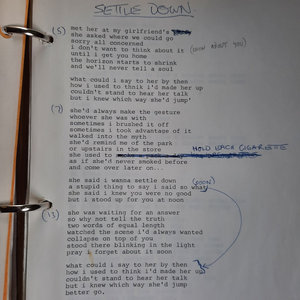 SETTLE DOWN.
(5) met her at my girlfriend's
she asked where we could go
sorry all concerned
i don't want to think about it (DOWN ABOUT YOU)
until i get you home
the horizon starts to shrink
and we'll never tell a soul
what could i say to her by then
how i used to think i'd made her up
couldn't stand to hear her talk
but i knew which way she'd jump
(7) she'd always make the gesture
whoever she was with
sometimes i brushed it off
sometimes i took advantage of it
walked into the myth
she'd remind me of the park
or upstairs in the store HOLD EACH CIGARETTE
she used to
as if she'd never smoked before
and come over later on...
she said i wanna settle down (DOWN)
a stupid thing to say i said so what
she said i knew you were no good
but i stood up for you at noon
(13) she was waiting for an answer
so why not tell the truth
two words of equal length
watched the scene i'd always wanted
collapse on top of you
stood there blinking in the light
pray i forget about it soon
what could i say to her by then
how i used to think i'd made her up
couldn't stand to hear her talk
but i knew which way she'd jump
better go.